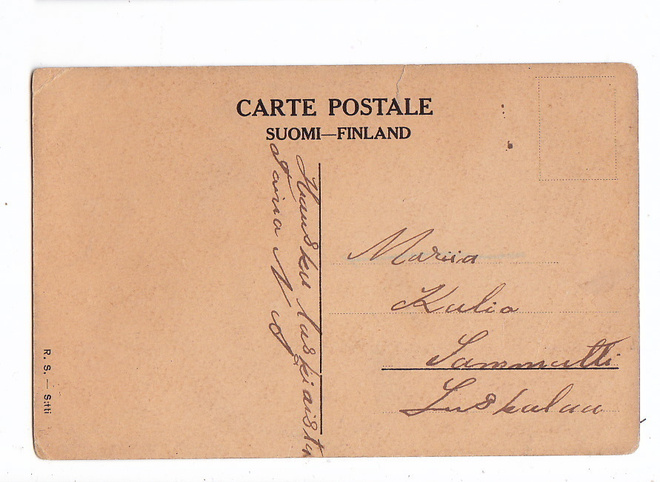 CARTE POSTALE
SUOMI—FINLAND
Hauskaa laskiaista
Taina N
Mariia
Kulio
Sammatti
Luskalaa
R. S. — S:tti